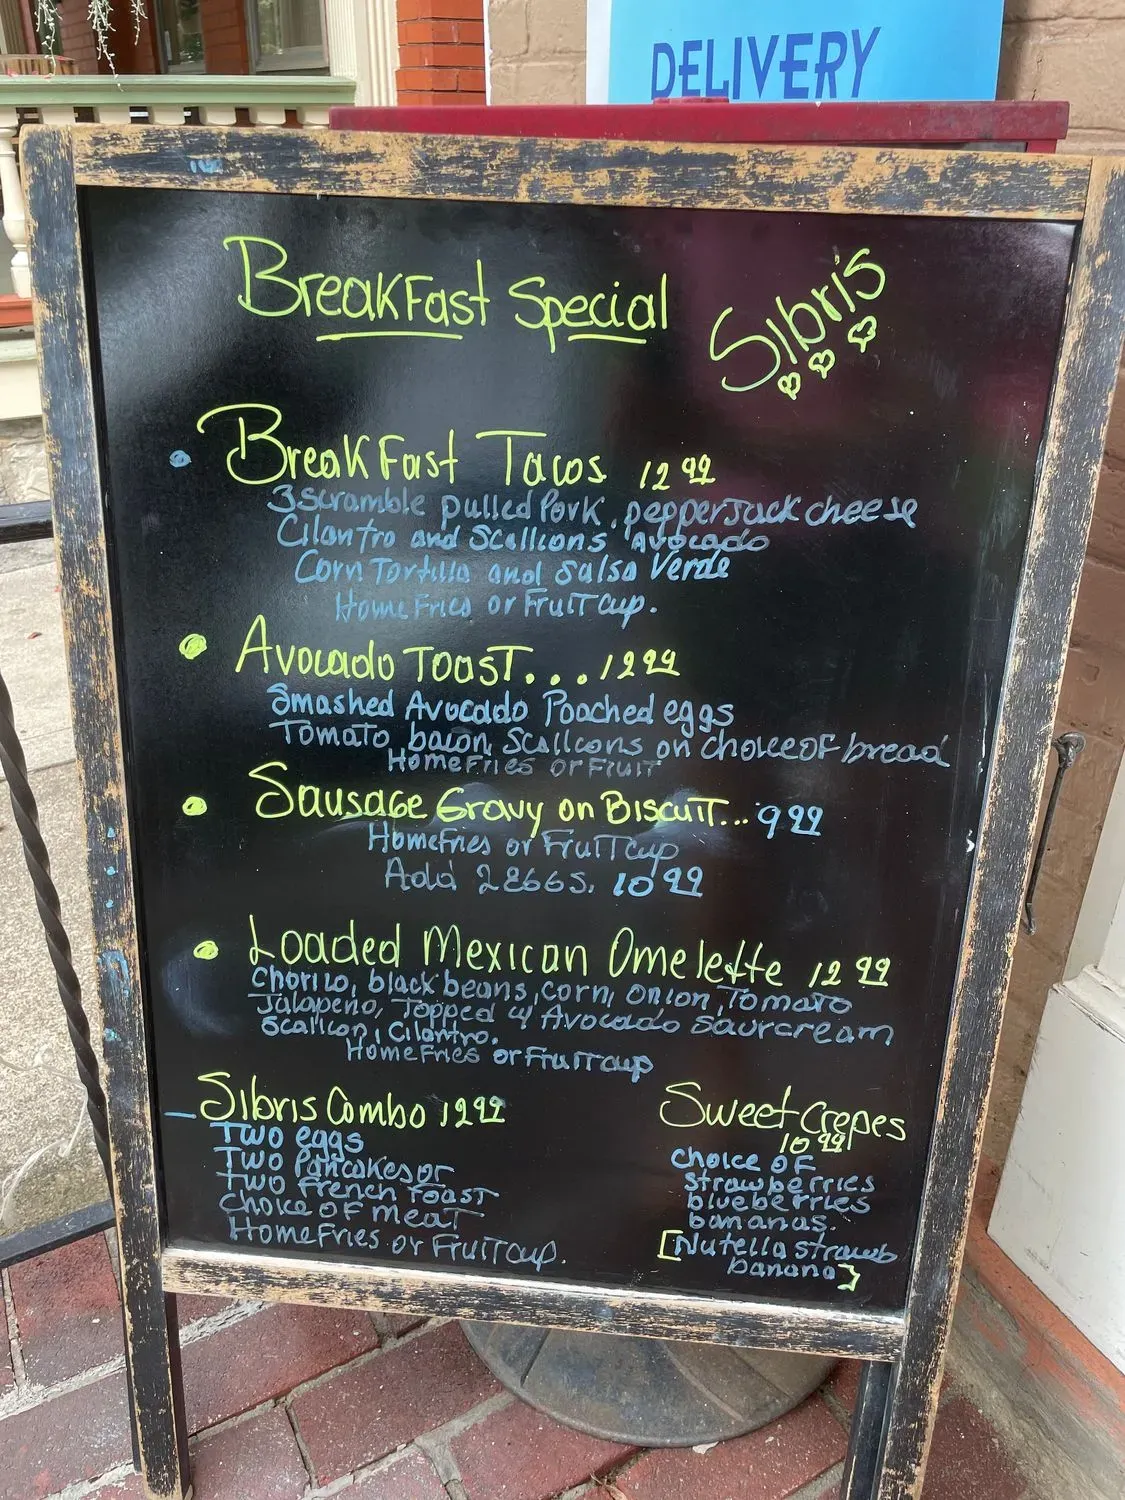 DELIVERY
BreakFast Special
Sibris
BreakFast Tacos 12 99
3 scramble pulled Pork, pepperJack cheese
Cilantro and Scallions Avocado
Corn Tortilla and Salsa Verde
Home Fries or FruiT cup.
Avocado ToasT... 12 99
Smashed Avocado Poached eggs
Tomato, bacon, Scallions on choice of bread
Home Fries or Fruit
Sausage Gravy on BiscuiT... 9 99
Home Fries or FruiT cup
Add 2 eggs. 10 99
Loaded Mexican Omelette 12 99
Chorizo, black beans, corn, onion, Tomato
Jalapeño, Topped w/ Avocado Sour cream
Scallion, Cilantro.
Home Fries or Fruit cup
Sibris Combo 12 99
Two eggs
Two Pancakes or
Two French Toast
Choice of meaT
Home Fries or FruiT cup.
Sweet Crepes
10 99
Choice OF
strawberries
blueberries
bananas.
[Nutella strawb
banana]